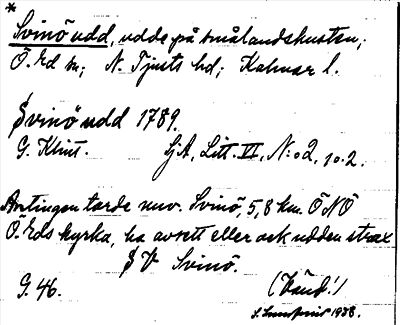 *
Svinö udd, udde på smålandskusten,
Ö. Ed sn; N. Tjusts hd; Kalmar l.
Svinö udd 1789.
G. Klint. SjA, Litt. VI, N:o 2, 10.2.
Antingen torde nuv. Svinö, 5,8 km. ÖNÖ
Ö. Eds kyrka, ha avsett eller ock udden strax
SV Svinö.
G. 46. (Vänd!)
1938.